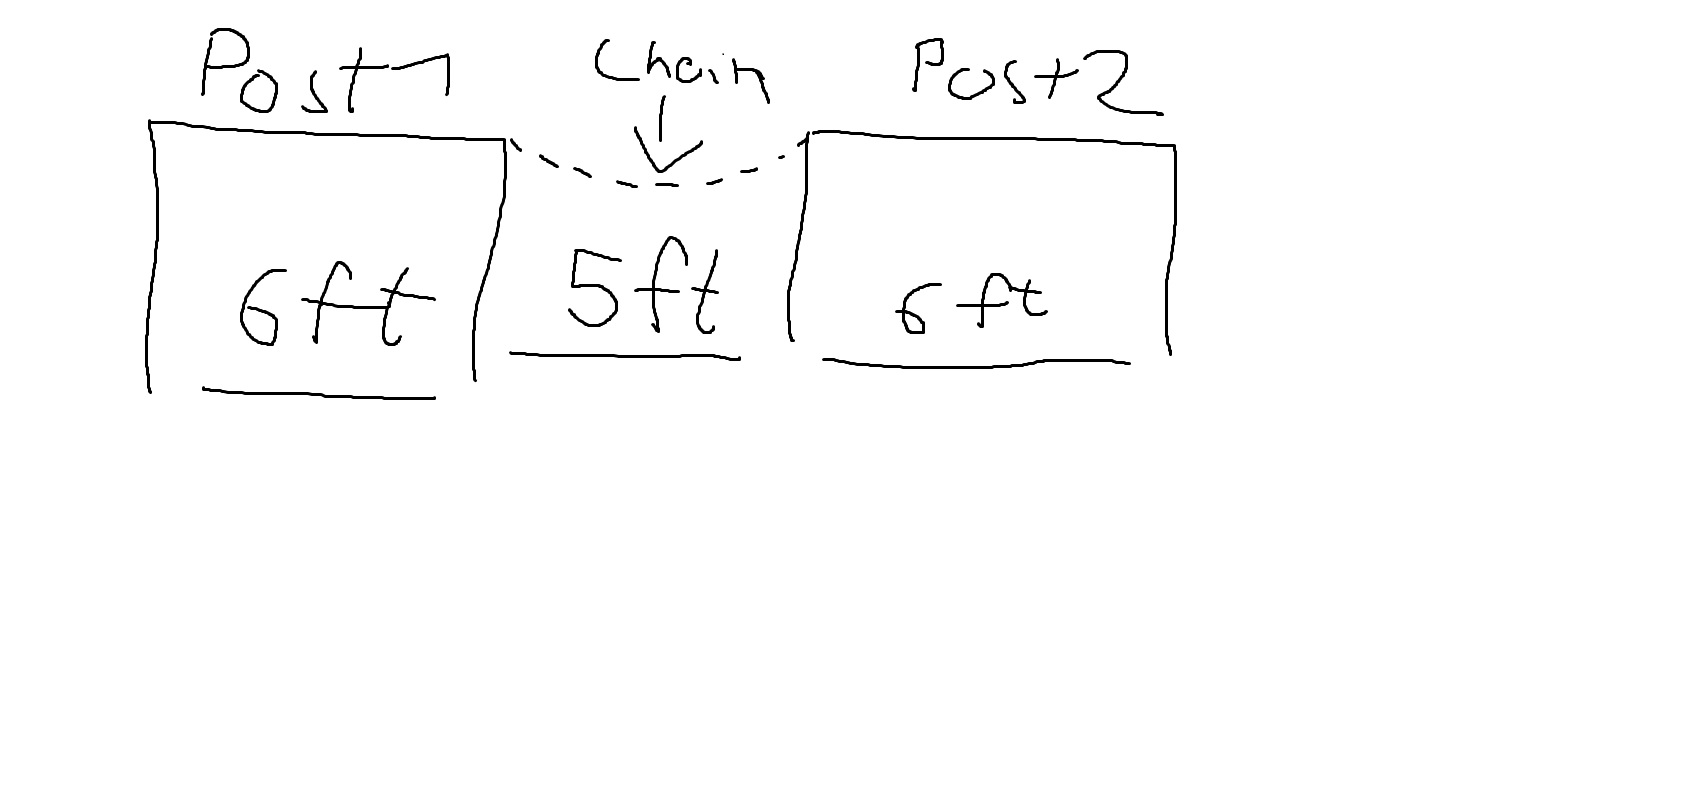 Post 1 Chain Post 2
6ft 5ft 6ft